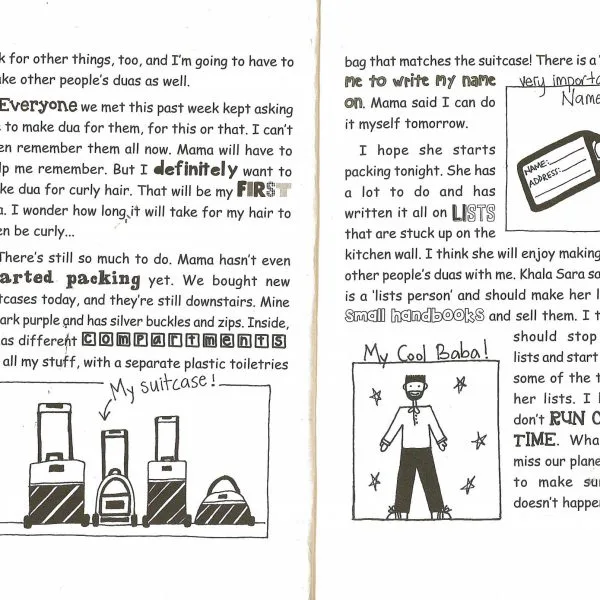 k for other things, too, and I'm going to have to
ke other people's duas as well.
Everyone we met this past week kept asking
e to make dua for them, for this or that. I can't
en remember them all now. Mama will have to
lp me remember. But I definitely want to
ke dua for curly hair. That will be my FIRST
a. I wonder how long it will take for my hair to
en be curly...
There's still so much to do. Mama hasn't even
arted packing yet. We bought new
tcases today, and they're still downstairs. Mine
ark purple and has silver buckles and zips. Inside,
as different COMPARTMENTS
all my stuff, with a separate plastic toiletries
My suitcase!
bag that matches the suitcase! There is a
me to write my name
on. Mama said I can do
it myself tomorrow.
very importa
Name
NAME:
ADDRESS:
I hope she starts
packing tonight. She has
a lot to do and has
written it all on LISTS
that are stuck up on the
kitchen wall. I think she will enjoy making
other people's duas with me. Khala Sara sa
is a 'lists person' and should make her l
small handbooks and sell them. I t
My Cool Baba!
should stop
lists and start
some of the t
her lists. I
don't RUN O
TIME. Wha
miss our plane
to make sur
doesn't happe